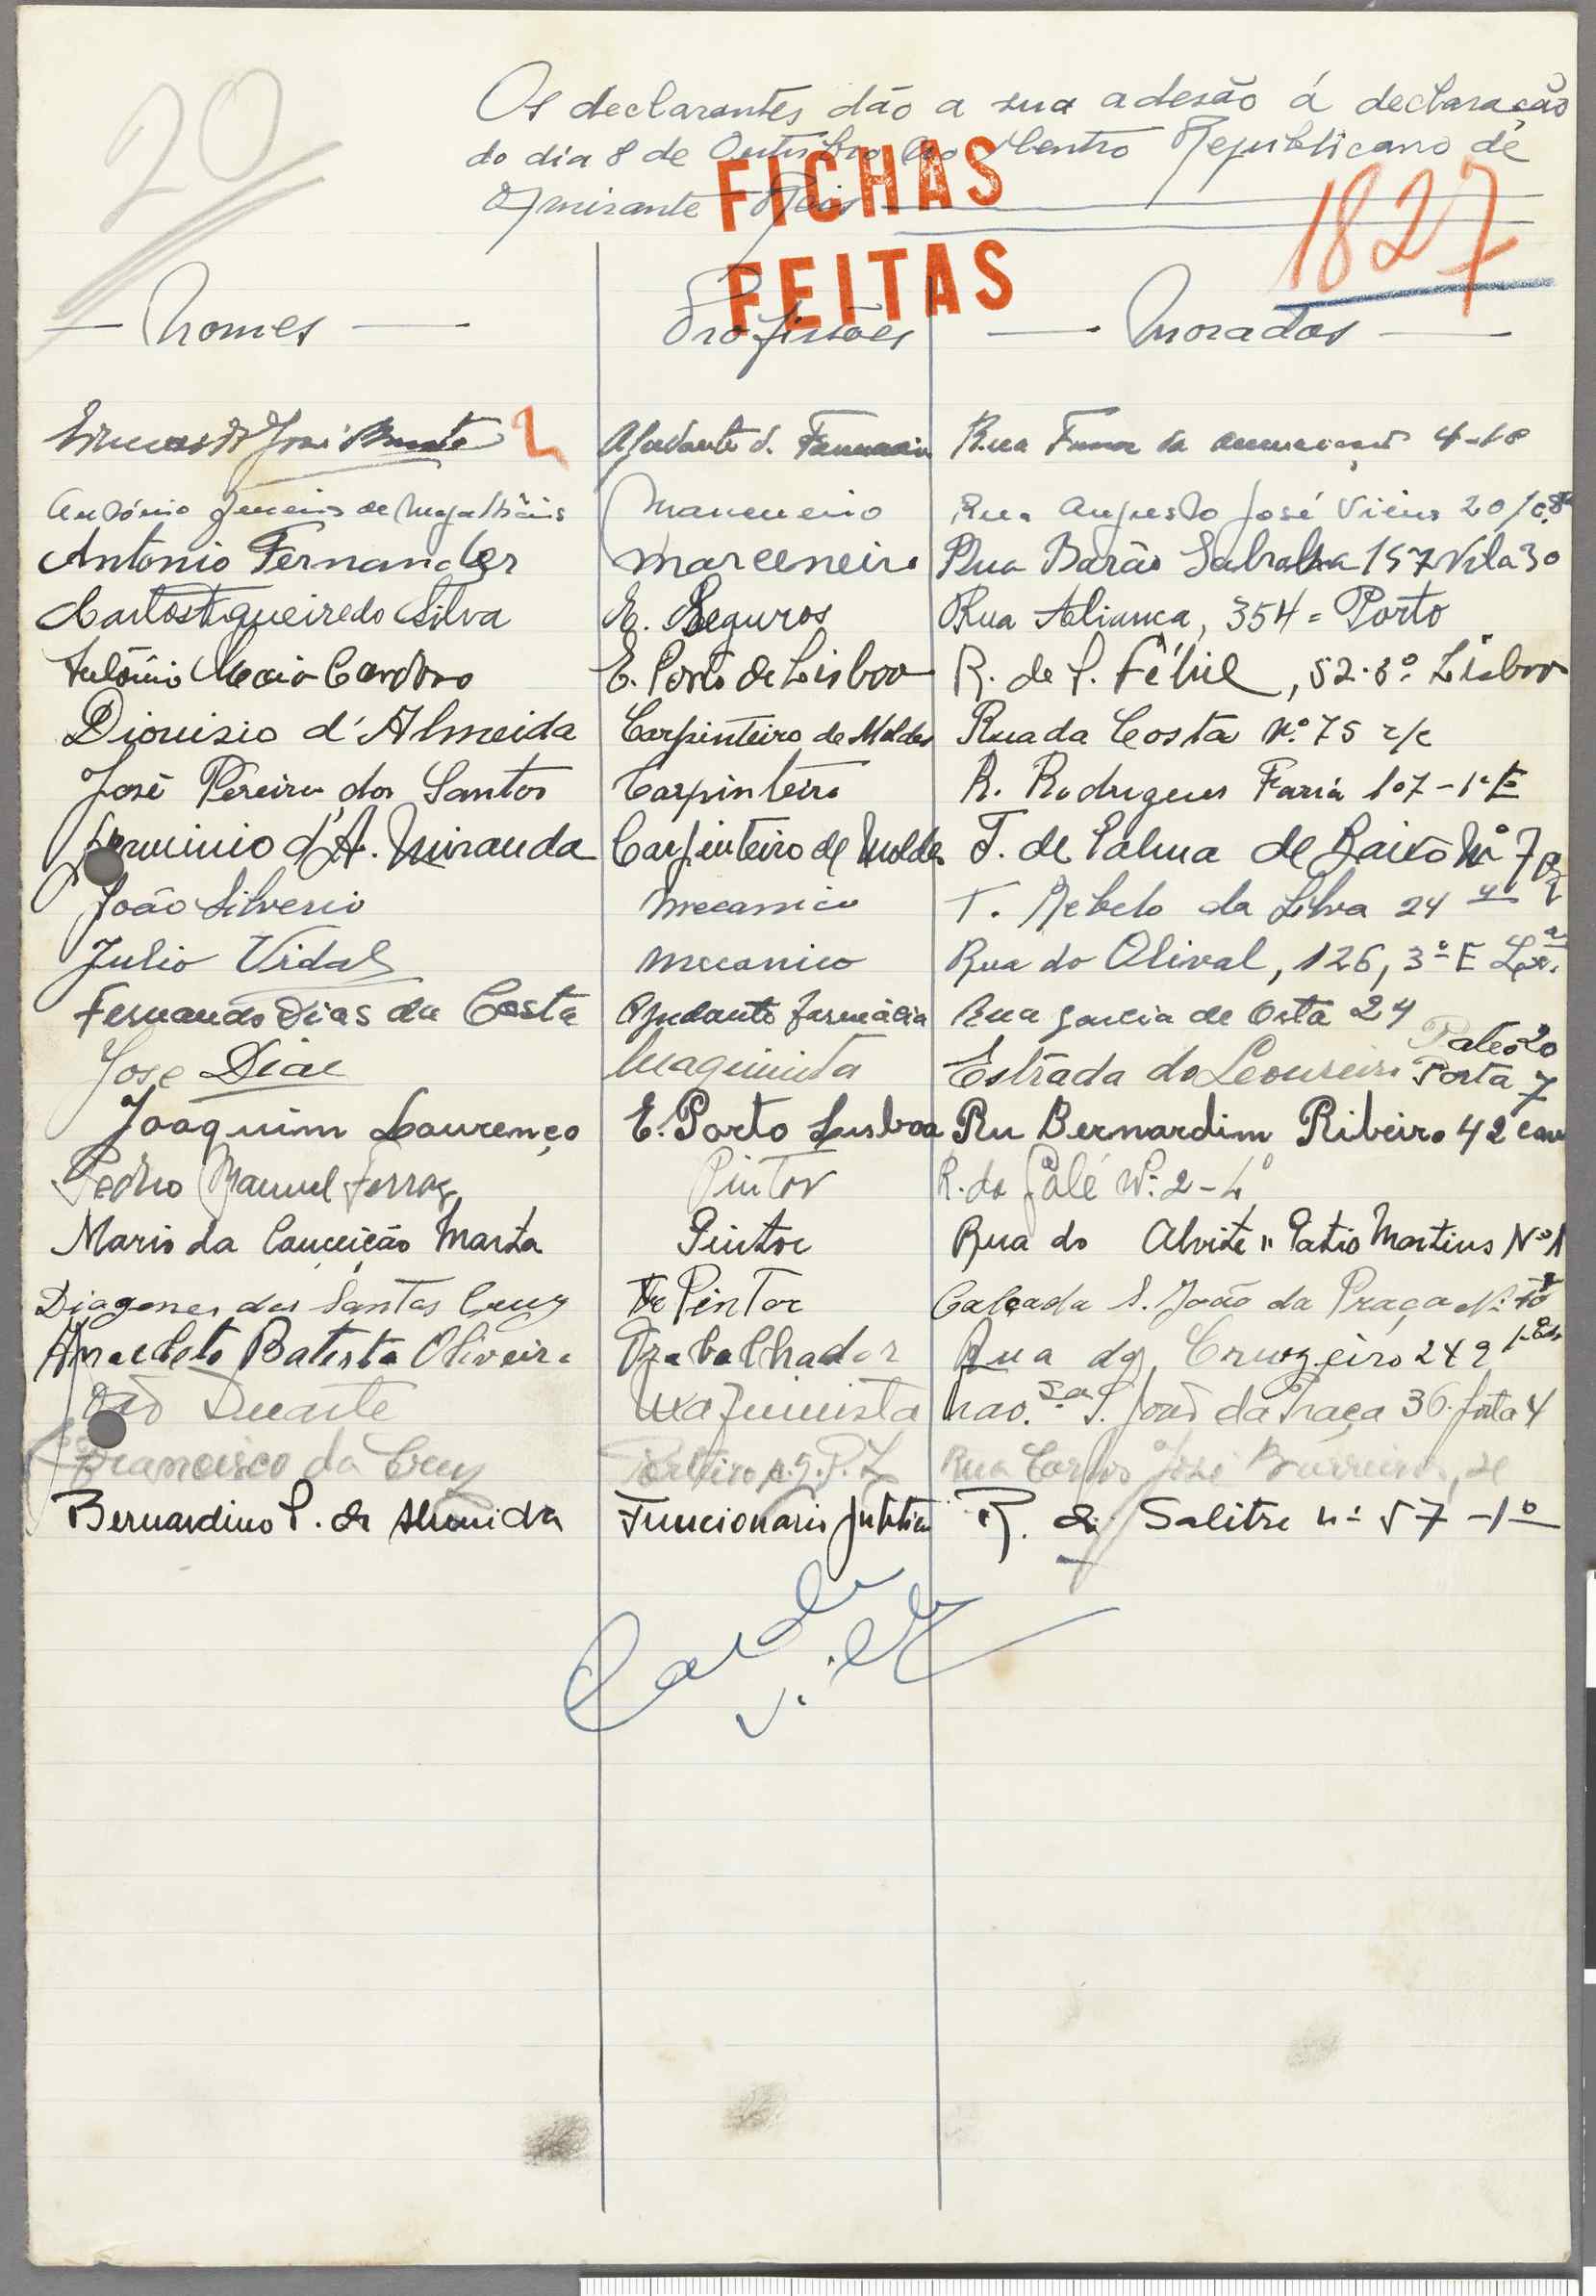 20
Os declarantes dão a sua adesão á declaração
do dia 8 de Outubro ao Centro Republicano de
Almirante Reis
FICHAS
FEITAS
1827
Nomes Profissões Moradas
José Ajudante d. Farmacia Rua 4-1º
2
António de Magalhãis Marceneiro Rua Augusto José Vieira 20
Antonio Fernandes marceneiro Rua Barão Sabrosa 157 Vila 30
Carlos Figueiredo Silva E. Seguros Rua Aliança, 354 = Porto
António Cardoso E. Porto de Lisboa R. de S. Félix, 52-3º Lisboa
Dionisio d'Almeida Carpinteiro de Moldes Rua da Costa Nº 75 r/c
José Pereira dos Santos Carpinteiro R. Rodrigues Faria 107-1º E
d'A. Miranda Carpinteiro de Moldes T. de Palma de Baixo Nº 7
João Silverio mecanico T. Rebelo da Silva 24
Julio Vidal mecanico Rua do Olival, 126, 3º E Lxª
Fernando Dias da Costa Ajudante farmácia Rua Garcia de Orta 24
Pateo 20
Jose Dias Maquinista Estrada do Loureiro Porta 7
Joaquim Lourenço E. Porto Lisboa Ru Bernardim Ribeiro 42 cave
Pedro Manuel Ferraz Pintor R. do Galé Nº 2-
Mario da Conceição Marta Pintor Rua do Alvito " Patio Martins Nº 1
Diogenes dos Santos Cruz Pintor Calçada S. João da Praça Nº
Anacleto Batista Oliveira Trabalhador Rua do Cruzeiro 242
Duarte Maquinista S. João da Praça 36 porta 4
Francisco da Cruz A.G.P.L Rua Carlos José Barreiros,
Bernardino P. de Almeida Funcionario publico R. do Salitre nº 57-1º